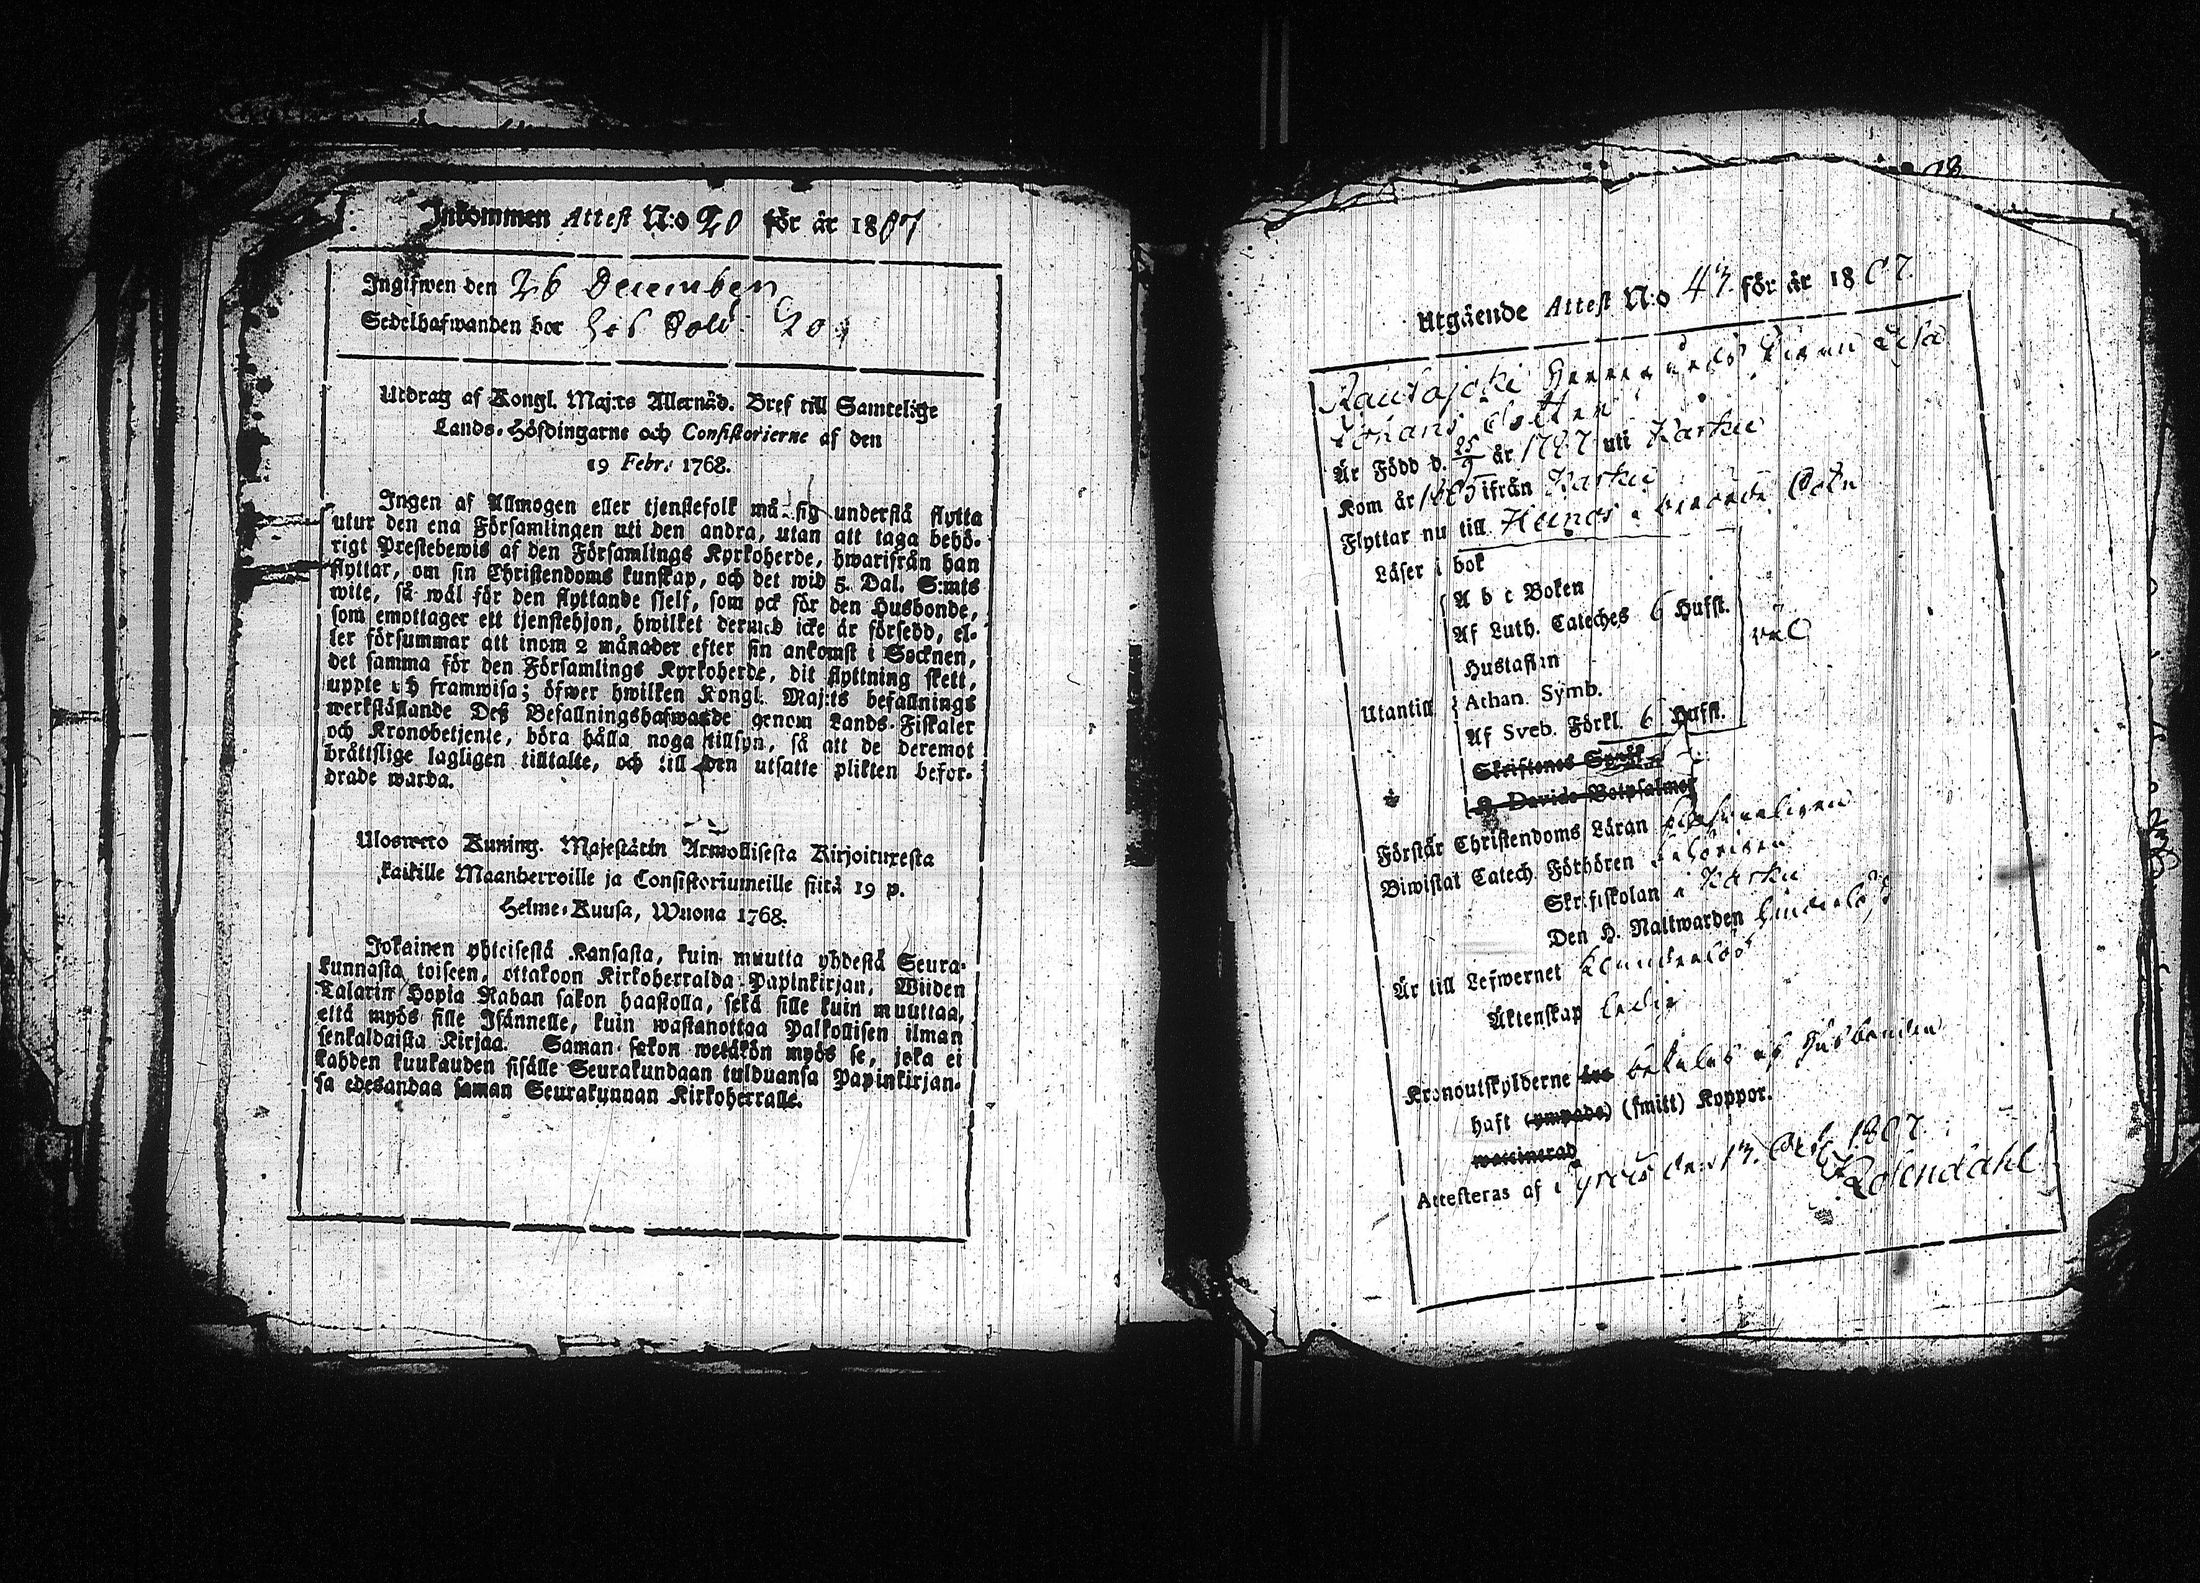 Inkommen Attest N:o 20 för år 1807
Ingifwen den 26 December
Sedelhafwanden bor hos
Utdrag af Kongl. Maj:ts Allernåd. Bref till Samtelige
Lands-Höfdingarne och Consistorierne af den
19 Febr. 1768.
Ingen af Allmogen eller tjenstefolk må sig understå flytta
utur den ena Församlingen uti den andra, utan att taga behö-
rigt Prestebewis af den Församlings Kyrkoherde, hwarifrån han
flyttar, om sin Christendoms kunskap, och det wid 5. Dal. S:mts
wite, så wäl för den flyttande sjelf, som ock för den Husbonde,
som emottager ett tjenstehjon, hwilket dermed icke är försedd, el-
ler försummar att inom 2 månader efter sin ankomst i Socknen,
det samma för den Församlings Kyrkoherde, dit flyttning skett,
uppte och framwisa; öfwer hwilken Kongl. Maj:ts befallnings
werkställande Deß Befallningshafwande genom Lands-Fiskaler
och Kronobetjente, böra hålla noga tillsyn, så att de deremot
bråttslige lagligen tilltalte, och till den utsatte plikten befor-
drade warda.
Uloswetto Kuning. Majestätin Armollisesta Kirjoituxesta
kaikille Maanherroille ja Consistoriumeille siitä 19 p.
Helme-Kuusa, Wuona 1768.
Jokainen yhteisestä Kansasta, kuin muutta yhdestä Seura-
kunnasta toiseen, ottakoon Kirkoherralda Papinkirjan, Wiiden
Talarin Hopia Rahan sakon haastolla, sekä sille kuin muuttaa,
että myös sille Isännelle, kuin wastanottaa Palkollisen ilman
senkaldaista Kirjaa. Saman sakon wetäkön myös se, joka ei
kahden kuukauden sisälle Seurakundaan tulduansa Papinkirjan-
sa edesandaa saman Seurakunnan Kirkoherralle.
Utgående Attest N:o 43 för år 1807
Rautajoki Pigan Lisa
Johans dotter
Är Född d. 25/9 år 1787 uti Karkku
Kom år 1805 ifrån Karkku
Flyttar nu till
Läser i bok
A b c Boken
Af Luth. Cateches 6 Hufst.
wäl
Hustaflan
Utantill
Athan. Symb.
Af Sveb. Förkl. 6 Hufst.
Skriftenes Språk
7 Davids Botpsalmer
Förstår Christendoms Läran
Biwistat Catech. Förhören behörigen
Skriftskolan i Karku
Den H. Nattwarden
Är till Lefwernet
Äktenskap ledig
Kronoutskylderne äro betalas af husbonden
haft (ympade) (smitt) Koppor.
waccinerad
Attesteras af Tyrvis den 13. Oct. 1807
Rosendahl